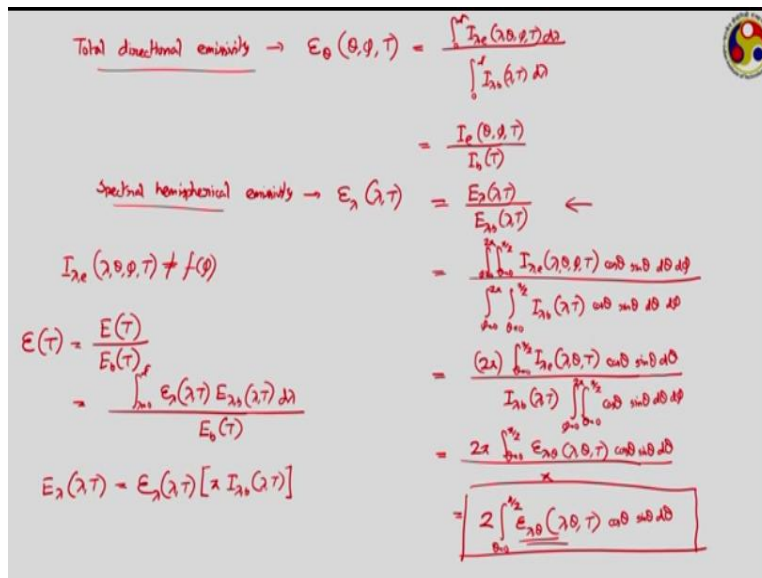 Total directional emissivity → ε_θ (θ,φ,T) = ∫_0^∞ I_λe (λ,θ,φ,T) dλ / ∫_0^∞ I_λb (λ,T) dλ
= I_e (θ,φ,T) / I_b (T)
Spectral hemispherical emissivity → ε_λ (λ,T) = E_λ(λ,T) / E_λb(λ,T) ←
I_λe (λ,θ,φ,T) ≠ f(φ)
= ∫_{φ=0}^{2π} ∫_{θ=0}^{π/2} I_λe (λ,θ,φ,T) cosθ sinθ dθ dφ / ∫_{φ=0}^{2π} ∫_{θ=0}^{π/2} I_λb (λ,T) cosθ sinθ dθ dφ
ε(T) = E(T) / E_b(T)
= ∫_{λ=0}^{∞} ε_λ(λ,T) E_λb(λ,T) dλ / E_b(T)
= (2π) ∫_{θ=0}^{π/2} I_λe (λ,θ,T) cosθ sinθ dθ / I_λb (λ,T) ∫_{φ=0}^{2π} ∫_{θ=0}^{π/2} cosθ sinθ dθ dφ
E_λ(λ,T) = ε_λ(λ,T) [π I_λb (λ,T)]
= 2π ∫_{θ=0}^{π/2} ε_λθ (λ,θ,T) cosθ sinθ dθ / π
= 2 ∫_{θ=0}^{π/2} ε_λθ (λ,θ,T) cosθ sinθ dθ